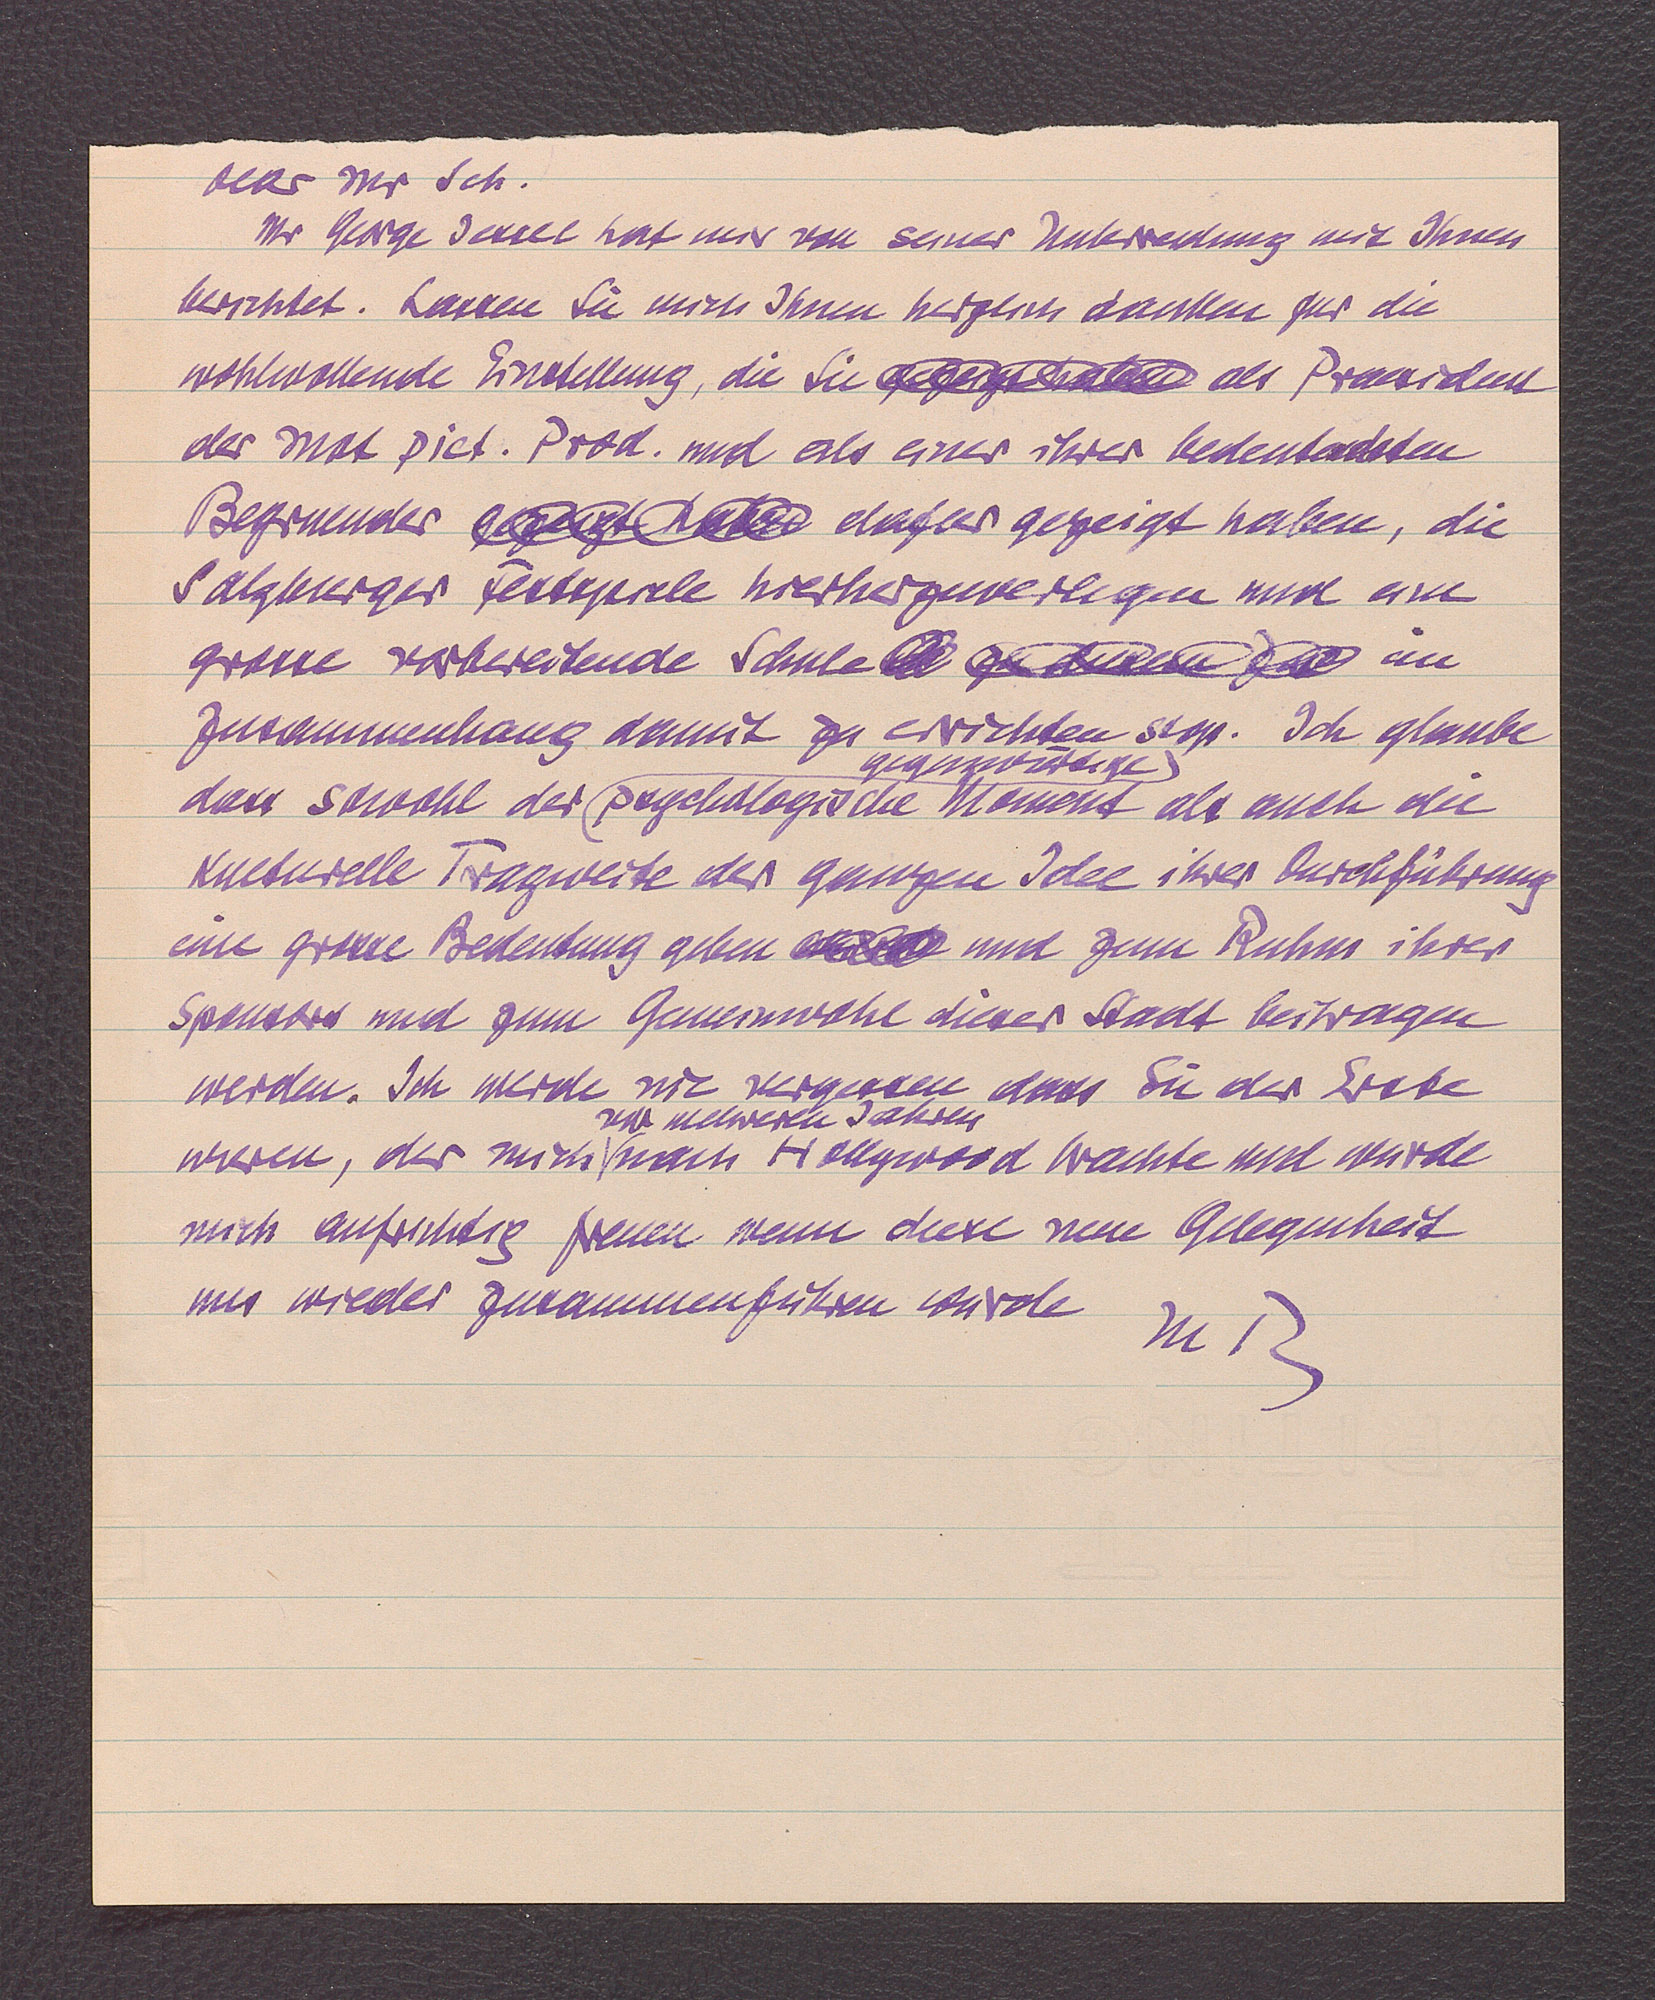 Dear Mr Sch.
Mr George Jessel hat mir von seiner Unterredung mit Ihnen
berichtet. Lassen Sie mich Ihnen herzlich danken fur die
wohlwollende Einstellung, die Sie gezeigt haben als Praesident
der Mot pict. Prod. und als einer ihrer bedeutendsten
Begruender gezeigt haben dafuer gezeigt haben, die
Salzburger Festspiele hierherzuverlegen und eine
grosse vorbereitende Schule im
Zusammenhang damit zu errichten stop. Ich glaube
gegenwärtige
dass sowohl der psychologische Moment als auch die
kulturelle Tragweite der ganzen Idee ihrer Durchführung
eine grosse Bedeutung geben und zum Ruhm ihrer
Sponsors und zum Gemeinwohl dieser Stadt beitragen
werden. Ich werde nie vergessen dass Sie der Erste
vor mehreren Jahren
waren, der mich nach Hollywood brachte und wurde
mich aufrichtig freuen wenn diese neue Gelegenheit
uns wieder zusammenfuhren wurde
M R